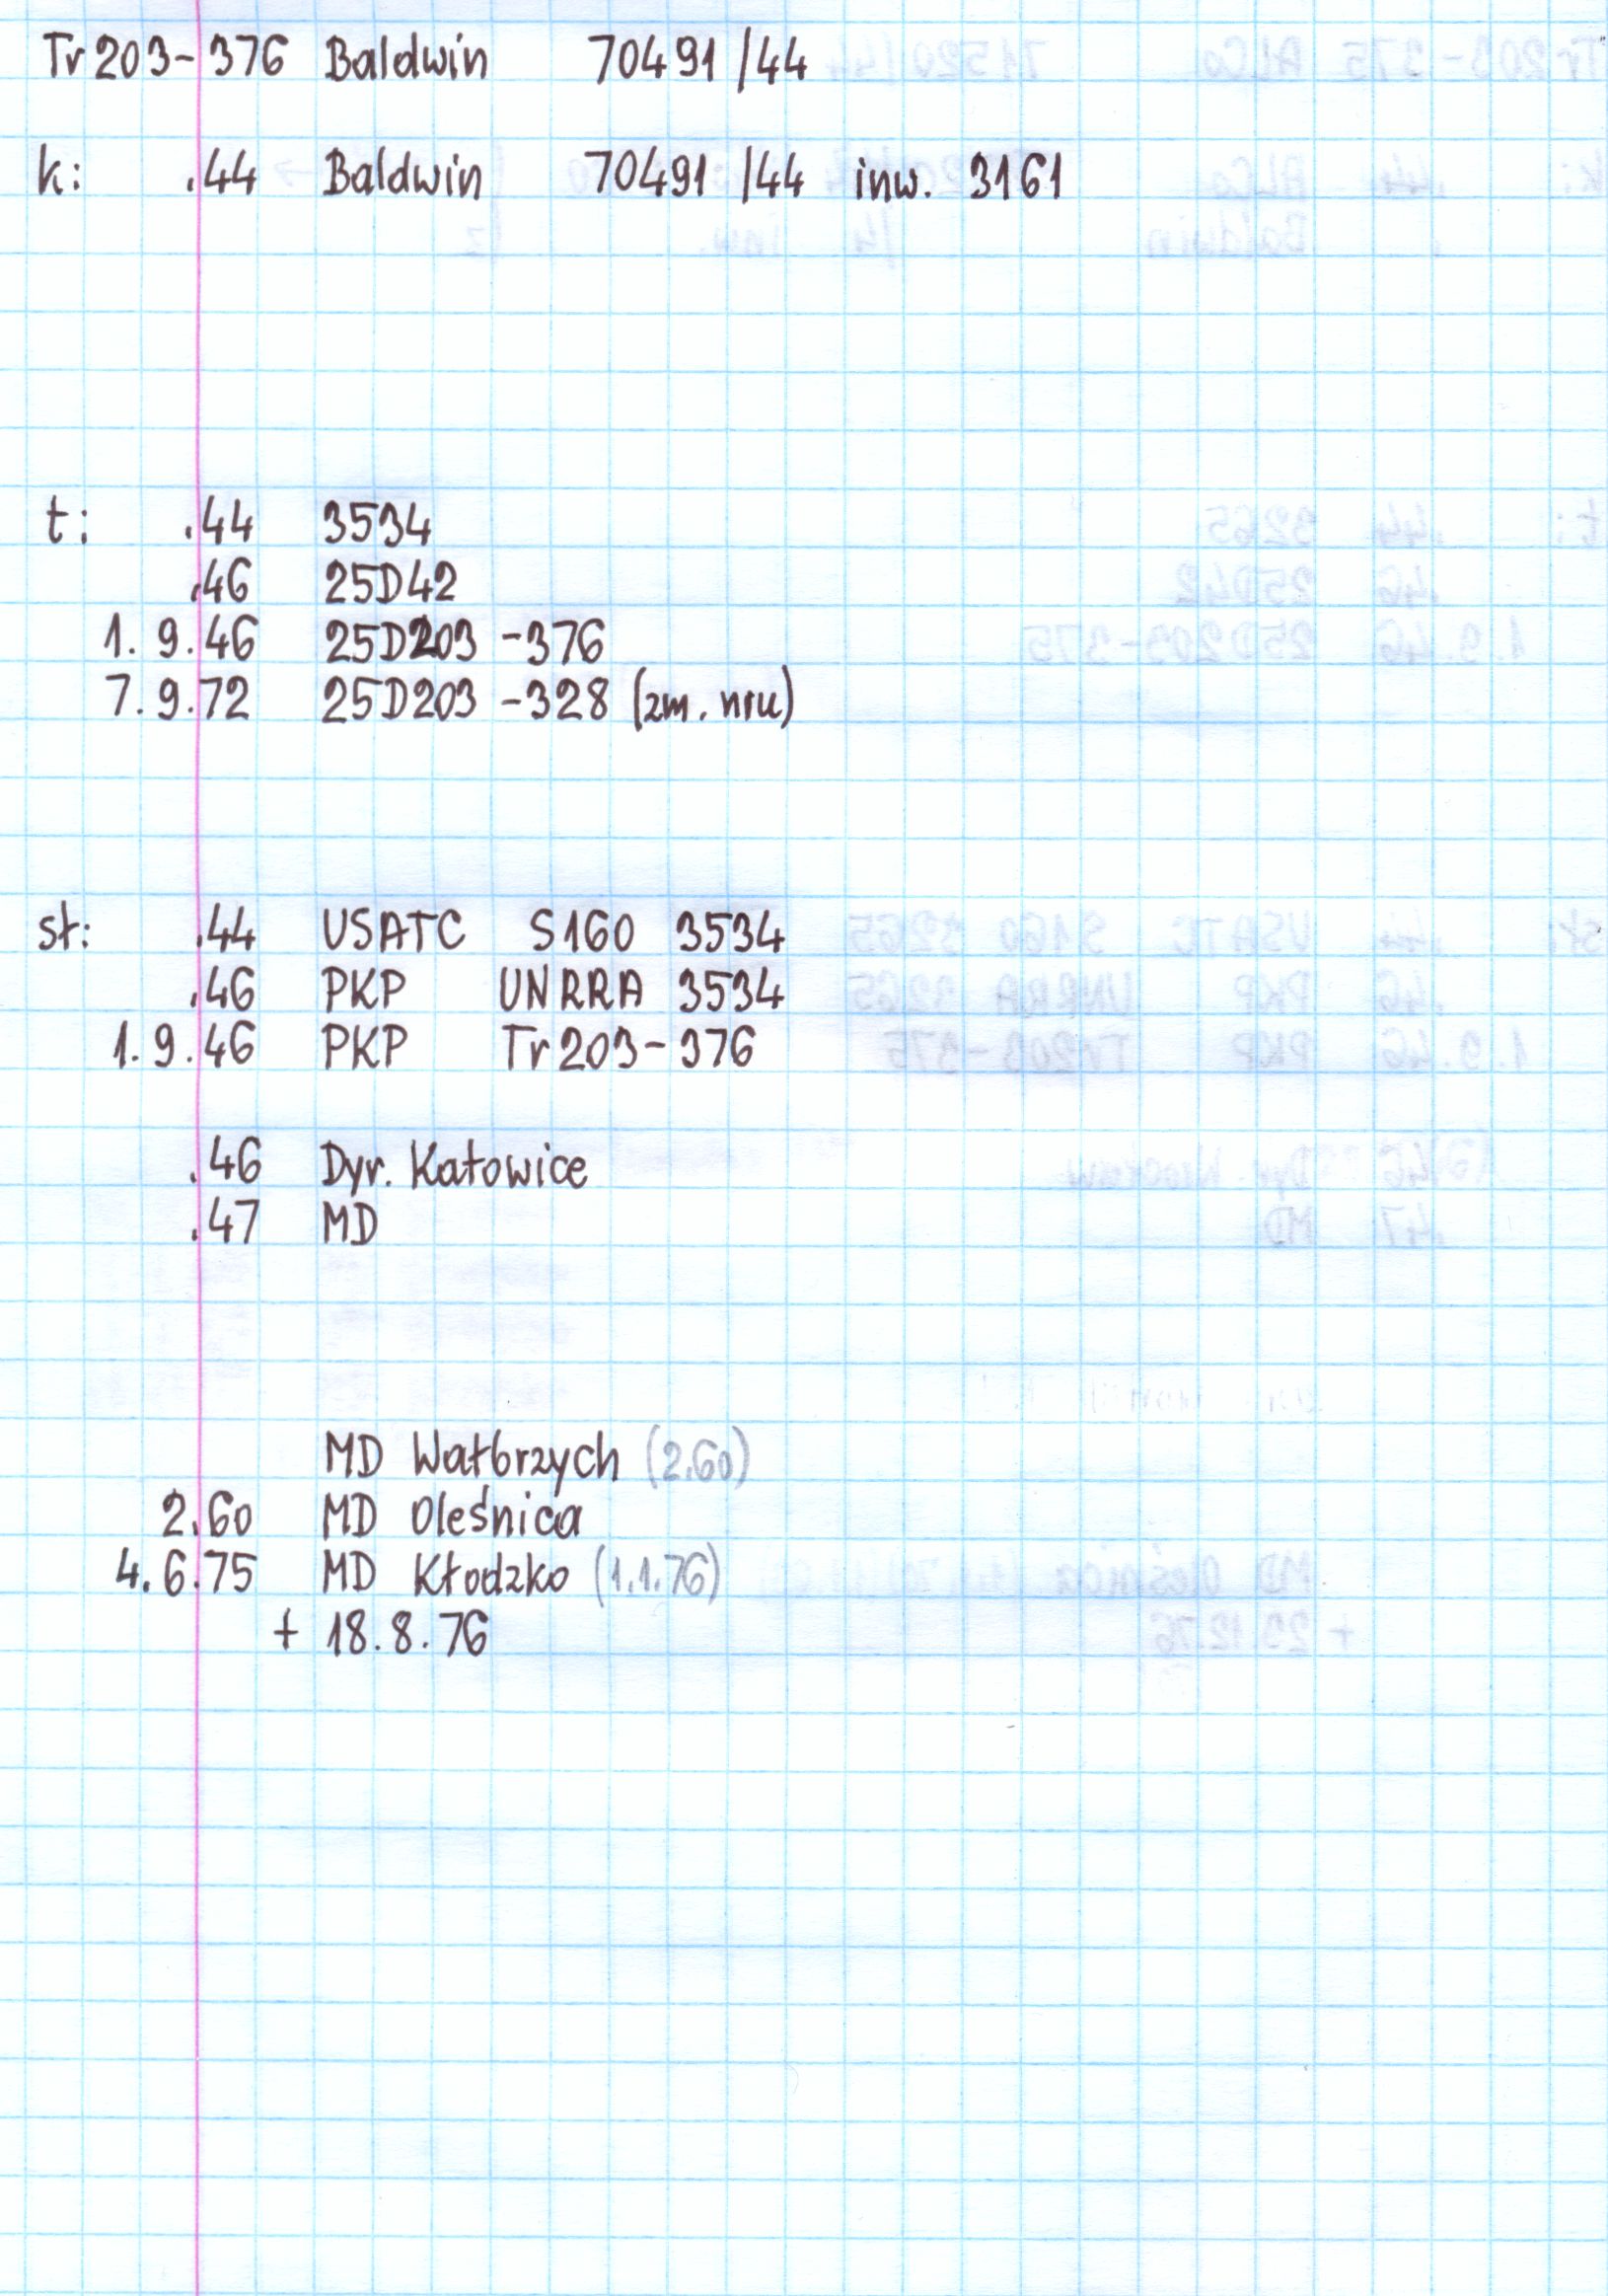 Tr203-376 Baldwin 70491/44
k: .44 Baldwin 70491/44 inw. 3161
t: .44 3534
.46 25D42
1.9.46 25D203-376
7.9.72 25D203-328 (zm. nru)
st: .44 USATC S160 3534
.46 PKP UNRRA 3534
1.9.46 PKP Tr203-376
.46 Dyr. Katowice
.47 MD
MD Wałbrzych (2.60)
2.60 MD Oleśnica
4.6.75 MD Kłodzko (1.1.76)
+ 18.8.76